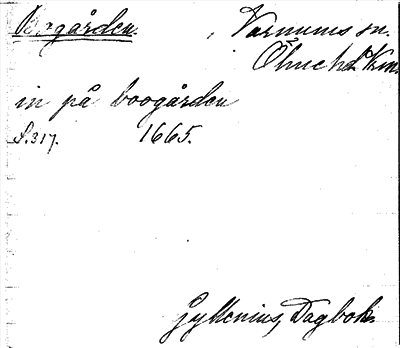 Boogården. , Varnums sn.
Ölme hd. Krm.
in på boogården
S. 317. 1665.
Gyllenius, Dagbok.